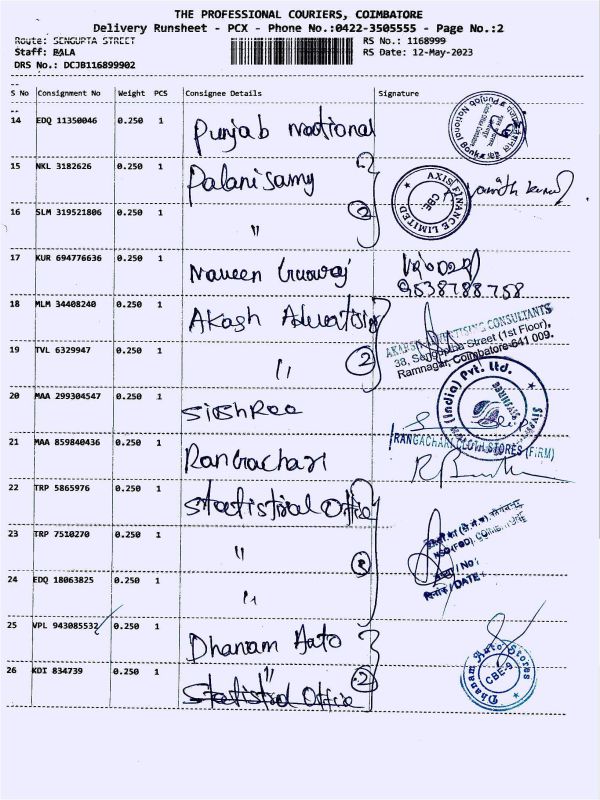 THE PROFESSIONAL COURIERS, COIMBATORE
Delivery Runsheet - PCX - Phone No.:0422-3505555 - Page No.:2
Route: SENGUPTA STREET
RS No.: 1168999
Staff: BALA
RS Date: 12-May-2023
DRS No.: DCJB116899902
S No Consignment No Weight PCS Consignee Details Signature
14 EDQ 11350046 0.250 1 Punjab National
Punjab National Bank
15 NKL 3182626 0.250 1 Palanisamy
AXIS FINANCE LIMITED
CBE
16 SLM 319521806 0.250 1 " 2
17 KUR 694776636 0.250 1 Naveen
9538788758
18 MLM 34408240 0.250 1 Akash
ADVERTISING CONSULTANTS
38, Sengupta Street (1st Floor),
Ramnagar, Coimbatore-641 009.
19 TVL 6329947 0.250 1 " 2
20 MAA 299304547 0.250 1 SIGSHREE
(India) Pvt. Ltd.
21 MAA 859840436 0.250 1 Rangachari
RANGACHARI CLOTH STORES (FIRM)
22 TRP 5865976 0.250 1 Statistical Office
23 TRP 7510270 0.250 1 "
NSO (FOD)
/ No :
/ DATE :
24 EDQ 18063825 0.250 1 "
25 VPL 943085532 0.250 1 Dhanam Auto
26 KDI 834739 0.250 1 " 2
Statistical Office
Dhanam Auto Stores
CBE-9